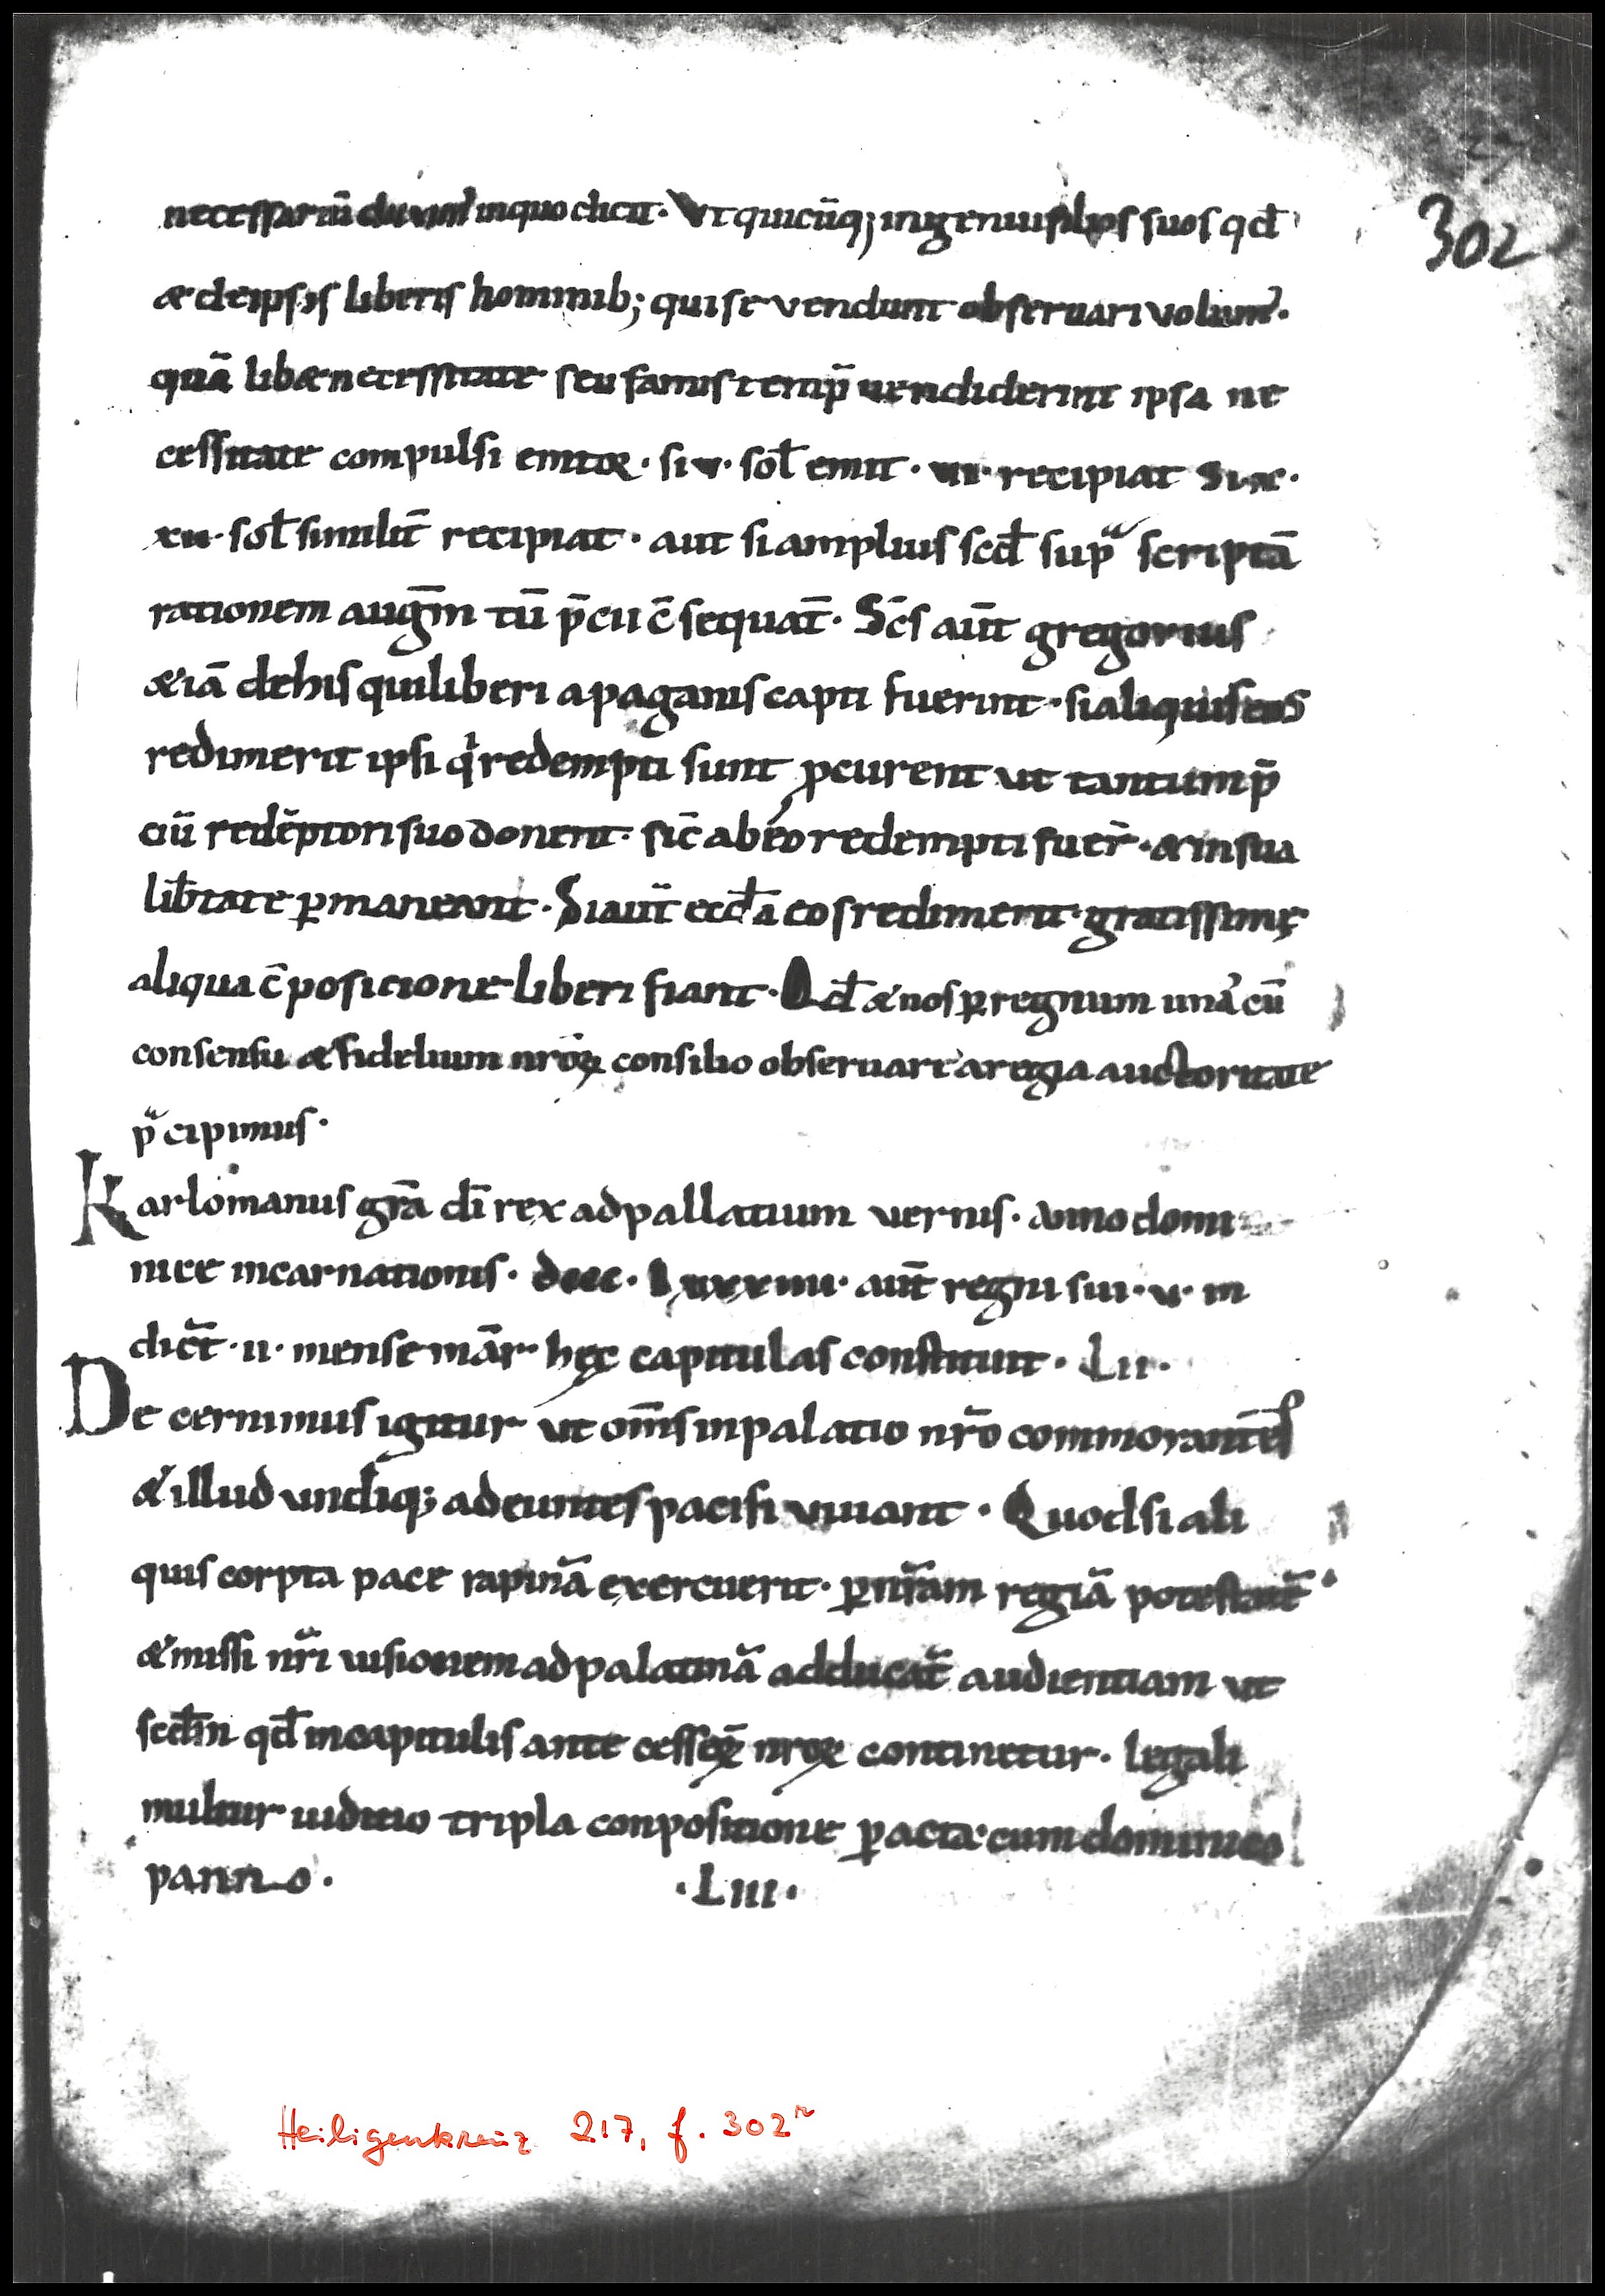 302
necessariū duxim᾽ inquo dicit· Vt quicūq; ingenui filios suos qd̄
& deipsis liberis hominib; quise vendunt obseruari volum᾽·
quā lib& necessitate seu famis temp̄ uendiderint ipsa ne
cessitate compulsi emtor · si·v· sol̄ emit · vi· recipiat Si·x·
xii· sol̄ similit̄ recipiat · aut si amplius scd̄ supᵃ scriptā
rationem augm̄ tū p̄cii c̄sequat̄· Sc̄s aūt gregorius
&iā dehis quiliberi apaganis capti fuerint · sialiquis eos
redimerit ipsi qͥ redempti sunt ꝓcurent vt tantum p̄
ciū redēptori suo donent· sic̄ ab eo redempti fuer̄ · & in sua
lib̄tate ꝑmaneant · Siaūt eccl̄ā eos redimerit· gratissimę
aliqua c̄posicione liberi fiant · Qd̄ & nos ꝑ regnum unā cū
consensu & fidelium nr̄oꝝ consilio obseruari aregia auctoritate
pᵃcipimus·
Karlomanus gr̄a dī rex adpallatium vernis· Anno domi
nice incarnationis· dccc· lxxxiiii· aūt regni sui· v· in
dict̄ ·ii· mense mār· hęc capitulas constituit · Lii·
De cernimus igitur vt om̄s inpalatio nr̄o commorantes
& illud vndiq; adeuntes pacifi viuant · Quodsi ali
quis corpta pace rapinā exercuerit· ꝑ nr̄am regiā potestat̄·
& missi nr̄i iusionem adpalatinā adducat̄ audientiam vt
scdm̄ qd̄ incapitulis ante cessoꝝ nroꝝ continetur· legali
multur iuditio tripla conpositione ꝑacta cum dominico
panno· ·Liii·
Heiligenkreuz 217, f. 302ʳ